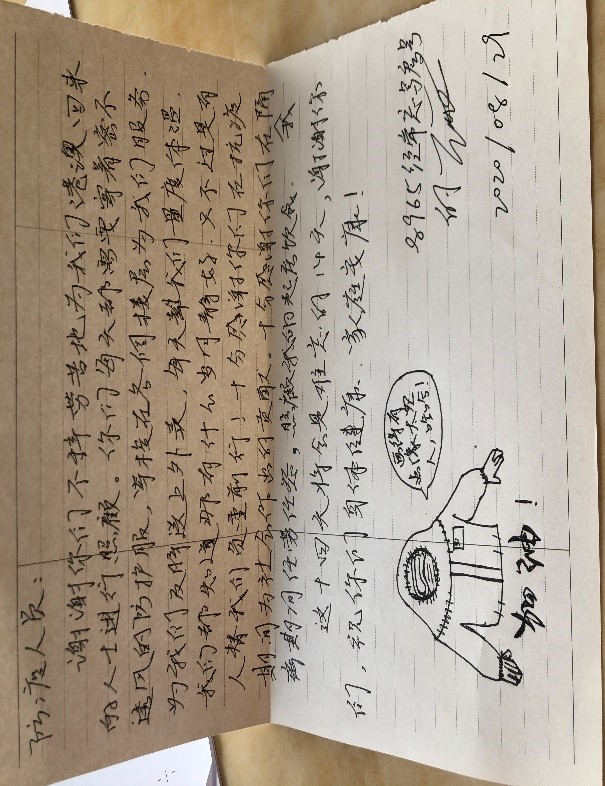 防疫人员：
谢谢你们不辞劳苦地为我们港澳回来
的人士进行照顾。你们每天都需要穿着密不
透风的防护服，穿梭在各个楼层为我们服务.
为我们及时送上外卖，每天帮我们量度体温.
我们都知道那有什么岁月静好.只不过是有
人替我们负重前行！十分感谢你们在抗疫
期间为社会作出的贡献。十分感谢你们在隔
离期间任劳任怨，照顾我的起居饮食. 我
这十四天将会是难忘的14天，谢谢你
们，祝你们身体健康.家庭安康！
画得有
点像太空
人，哈哈！
8965经常忘写房号
的
2020/08/29